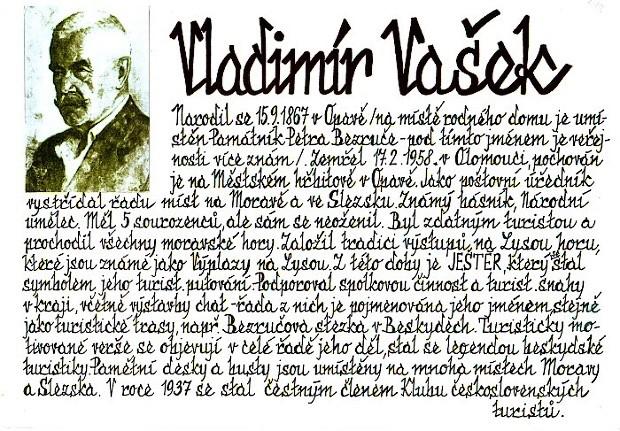 Vladimír Vašek
Narodil se 15.9.1867 v Opavě /na místě rodného domu je umí-
stěn Památník Petra Bezruče - pod tímto jménem je veřej-
nosti více znám/. Zemřel 17.2.1958 v Olomouci, pochován
je na Městském hřbitově v Opavě. Jako poštovní úředník
vystřídal řadu míst na Moravě a ve Slezsku. Známý básník, Národní
umělec. Měl 5 sourozenců, ale sám se neoženil. Byl zdatným turistou a
prochodil všechny moravské hory. Založil tradici výstupů na Lysou horu,
které jsou známé jako Výplazy na Lysou. Z této doby je JEŠTĚR, který se stal
symbolem jeho turist. putování. Podporoval spolkovou činnost a turist. snahy
v kraji, včetně výstavby chat - řada z nich je pojmenována jeho jménem, stejně
jako turistické trasy, např. Bezručova stezka v Beskydech. Turisticky mo-
tivované verše se objevují v celé řadě jeho děl, stal se legendou beskydské
turistiky. Pamětní desky a busty jsou umístěny na mnoha místech Moravy
a Slezska. V roce 1937 se stal čestným členem Klubu československých
turistů.